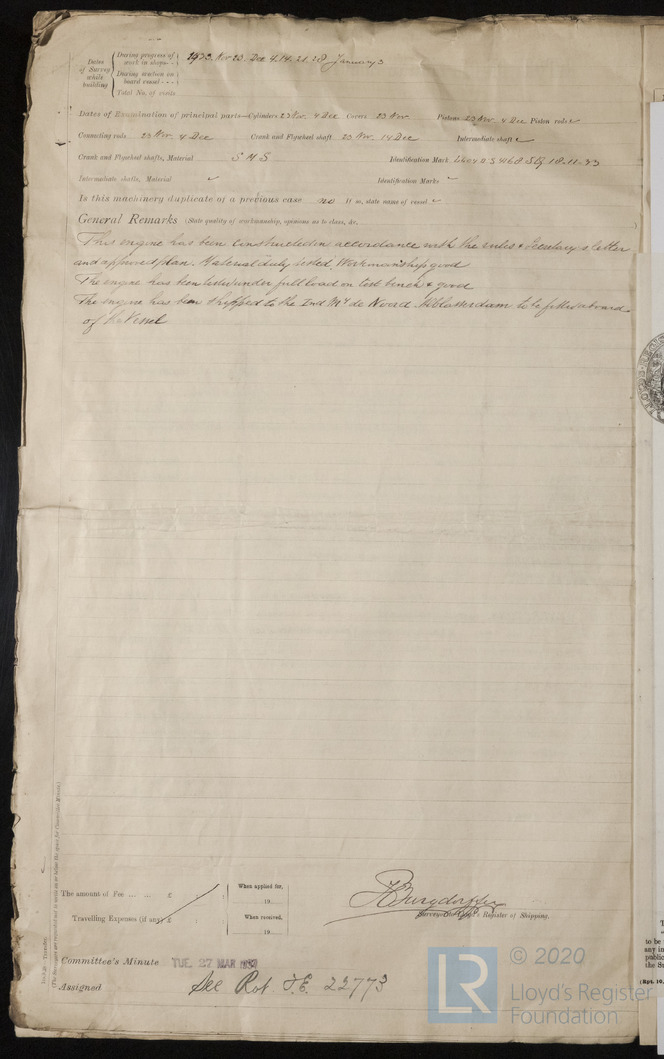 Dates of Survey while building
During progress of work in shops - - 1933. Nov 23. Dec 4. 14. 21. 28 January 3
During erection on board vessel - - -
Total No. of visits
Dates of Examination of principal parts—Cylinders 23 Nov. 4 Dec Covers 23 Nov Pistons 23 Nov. 4 Dec Piston rods ✓
Connecting rods 23 Nov. 4 Dec Crank and Flywheel shaft 23 Nov. 14 Dec Intermediate shaft ✓
Crank and Flywheel shafts, Material S M S Identification Mark 18-11-33
Intermediate shafts, Material ✓ Identification Marks ✓
Is this machinery duplicate of a previous case no If so, state name of vessel ✓
General Remarks (State quality of workmanship, opinions as to class, &c.
This engine has been constructed in accordance with the rules & Secretary's letter
and approved plan. Material duly tested, Workmanship good
The engine has been tested under full load on test bench & good
The engine has been shipped to the de Noord Alblasserdam to be fitted aboard
of the vessel
The amount of Fee ... ... £
When applied for,
19
Travelling Expenses (if any) £
When received,
19
Burgdorffer
Surveyor to Lloyd's Register of Shipping.
Committee's Minute TUE. 27 MAR
Assigned See Rot. F.E. 22773
LR
© 2020
Lloyd's Register
Foundation